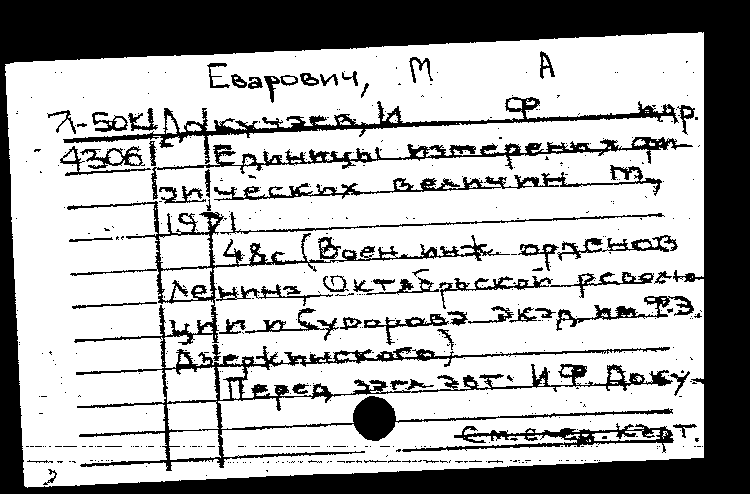 Еварович, М А
Л-50К Докучаев, И Ф идр.
4306 Единицы измерения фи-
зических величин М,
1971
48с (Воен. инж. орденов
Ленина, Октябрьской револю-
ции и Суворова акад. им. Ф.Э.
Дзержинского)
Перед загл. авт. И.Ф. Доку-
См. след. карт.